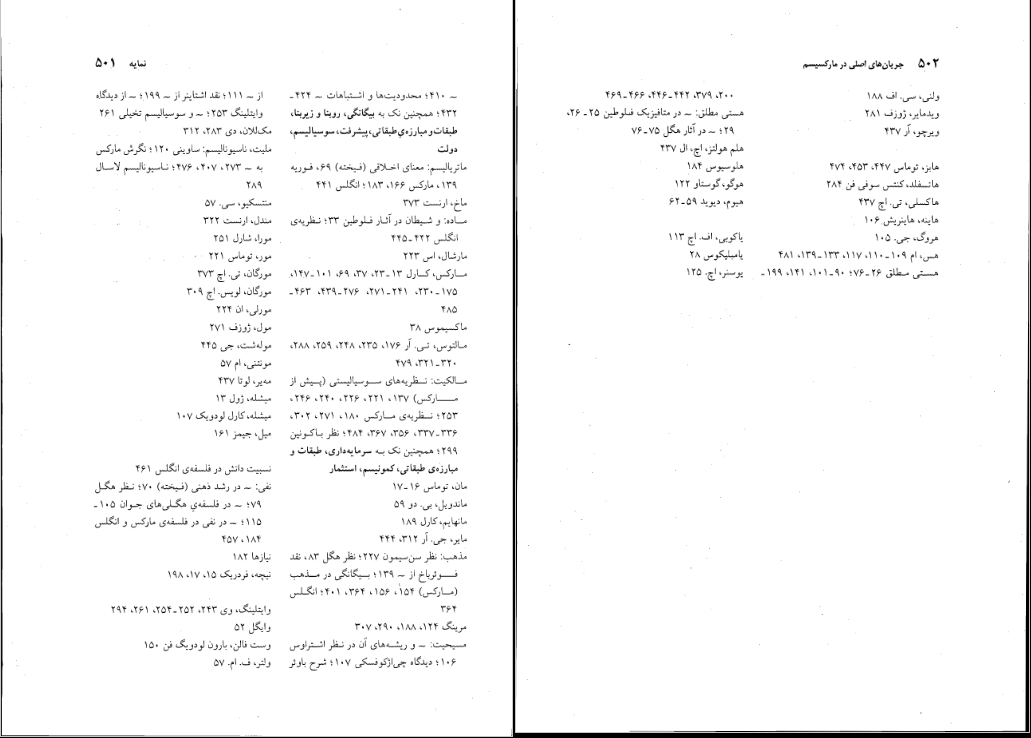 نمایه ۵۰۱
~ ۴۱۰؛ محدودیت‌ها و اشتباهات ~ ۴۲۴ـ
۴۳۲؛ همچنین نک به بیگانگی، روبنا و زیربنا،
طبقات و مبارزه‌ی طبقاتی، پیشرفت، سوسیالیسم،
دولت
ماتریالیسم: معنای اخلاقی (فیخته) ۶۹، فوریه
۱۳۹، مارکس ۱۶۶، ۱۸۳؛ انگلس ۴۴۱
ماخ، ارنست ۳۷۳
ماده: و شیطان در آثار فلوطین ۳۳؛ نظریه‌ی
انگلس ۴۲۲ـ۴۴۵
مارشال، اس ۲۲۳
مارکس، کارل ۱۳ـ۲۳، ۳۷، ۶۹، ۱۰۱ـ۱۴۷،
۱۷۵ـ۲۳۰، ۲۴۱ـ۲۷۱، ۲۷۶ـ۴۳۹، ۴۶۳ـ
۴۸۵
ماکسیموس ۳۸
مالتوس، تی. آر ۱۷۶، ۲۳۵، ۲۴۸، ۲۵۹، ۲۸۸،
۳۲۰ـ۳۲۱، ۴۷۹
مالکیت: نظریه‌های سوسیالیستی (پیش از
مارکس) ۱۳۷، ۲۲۱، ۲۲۶، ۲۴۰، ۲۴۶،
۲۵۳؛ نظریه‌ی مارکس ۱۸۰، ۲۷۱، ۳۰۲،
۳۳۶ـ۳۳۷، ۳۵۶، ۳۶۷، ۴۸۴؛ نظر باکونین
۲۹۹؛ همچنین نک به سرمایه‌داری، طبقات و
مبارزه‌ی طبقاتی، کمونیسم، استثمار
مان، توماس ۱۶ـ۱۷
ماندویل، بی. دو ۵۹
مانهایم، کارل ۱۸۹
مایر، جی. آر ۳۱۲، ۴۴۴
مذهب: نظر سن‌سیمون ۲۲۷؛ نظر هگل ۸۳، نقد
فوئرباخ از ~ ۱۳۹؛ بیگانگی در مذهب
(مارکس) ۱۵۴، ۱۵۶، ۳۶۴، ۴۰۱؛ انگلس
۳۶۴
مرینگ ۱۲۴، ۱۸۸، ۲۹۰، ۳۰۷
مسیحیت: ~ و ریشه‌های آن در نظر اشتراوس
۱۰۶؛ دیدگاه چی‌اژکوفسکی ۱۰۷؛ شرح باوئر
از ~ ۱۱۱؛ نقد اشتاینر از ~ ۱۹۹؛ ~ از دیدگاه
وایتلینگ ۲۵۳؛ ~ و سوسیالیسم تخیلی ۲۶۱
مک‌للان، دی ۲۸۳، ۳۱۲
ملیت، ناسیونالیسم: ساوینی ۱۲۰؛ نگرش مارکس
به ~ ۲۷۳، ۴۰۷، ۲۷۶؛ ناسیونالیسم لاسال
۲۸۹
منتسکیو، سی. ۵۷
مندل، ارنست ۳۲۲
مورا، شارل ۲۵۱
مور، توماس ۲۲۱
مورگان، تی. اچ ۳۷۳
مورگان، لویس. اچ ۳۰۹
مورلی، ان ۲۲۴
مول، ژوزف ۲۷۱
موله‌شت، جی ۴۴۵
مونتنی، ام ۵۷
مه‌یر، لوتا ۴۳۷
میشله، ژول ۱۳
میشله، کارل لودویک ۱۰۷
میل، جیمز ۱۶۱
نسبیت دانش در فلسفه‌ی انگلس ۴۶۱
نفی: ~ در رشد ذهنی (فیخته) ۷۰؛ نظر هگل
۷۹؛ ~ در فلسفه‌ی هگلی‌های جوان ۱۰۵ـ
۱۱۵؛ ~ در نفی در فلسفه‌ی مارکس و انگلس
۱۸۴، ۴۵۷
نیازها ۱۸۲
نیچه، فردریک ۱۵، ۱۷، ۱۹۸
وایتلینگ، وی ۲۴۳، ۲۵۲ـ۲۵۴، ۲۶۱، ۲۹۴
وایگل ۵۲
وست فالن، بارون لودویگ فن ۱۵۰
ولتر، ف. ام. ۵۷
۵۰۲ جریان‌های اصلی در مارکسیسم
ولنی، سی. اف ۱۸۸
ویدمایر، ژوزف ۲۸۱
ویرچو، آر ۴۳۷
هابز، توماس ۴۴۷، ۴۵۳، ۴۷۴
هاتسفلد، کنتس سوفی فن ۲۸۴
هاکسلی، تی. اچ ۴۳۷
هاینه، هاینریش ۱۰۶
هروگ، جی. ۱۰۵
هس، ام ۱۰۹ـ۱۱۰، ۱۱۷، ۱۳۳ـ۱۳۹، ۴۸۱
هستی مطلق ۲۶ـ۷۶؛ ۹۰ـ۱۰۱، ۱۴۱، ۱۹۹ـ
۲۰۰، ۳۷۹، ۴۴۲ـ۴۴۶، ۴۶۶ـ۴۶۹
هستی مطلق: ~ در متافیزیک فلوطین ۲۵ـ۲۶،
۲۹؛ ~ در آثار هگل ۷۵ـ۷۶
هلم هولتز، اچ، ال ۴۳۷
هلوسیوس ۱۸۴
هوگو، گوستاو ۱۲۲
هیوم، دیوید ۵۹ـ۶۲
یاکوبی، اف. اچ ۱۱۳
یامبلیکوس ۲۸
یوسنر، اچ. ۱۲۵